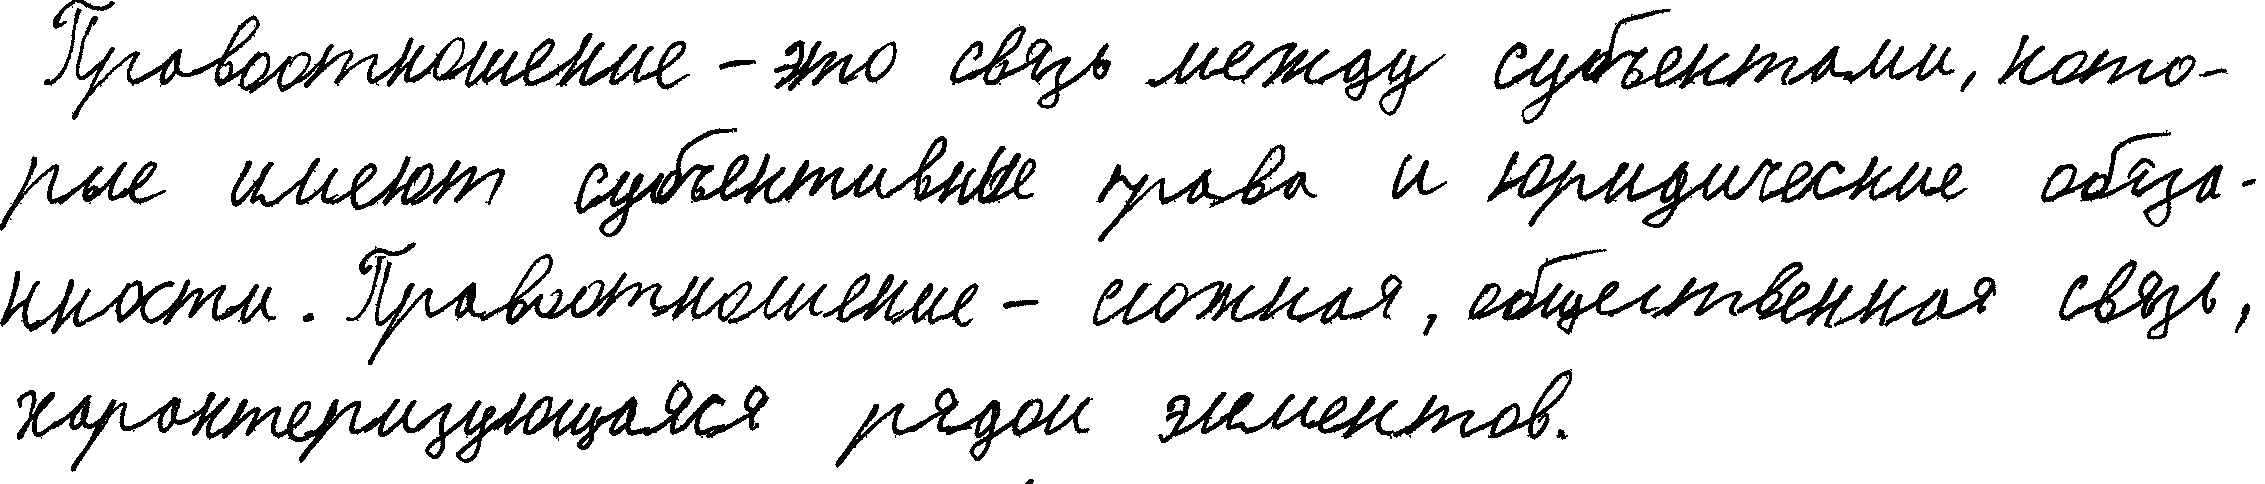 Правоотношение – это связь между субъектами, кото-
рые имеют субъективные права и юридические обяза-
нности. Правоотношение – сложная, общественная связь,
характеризующаяся рядом элементов.